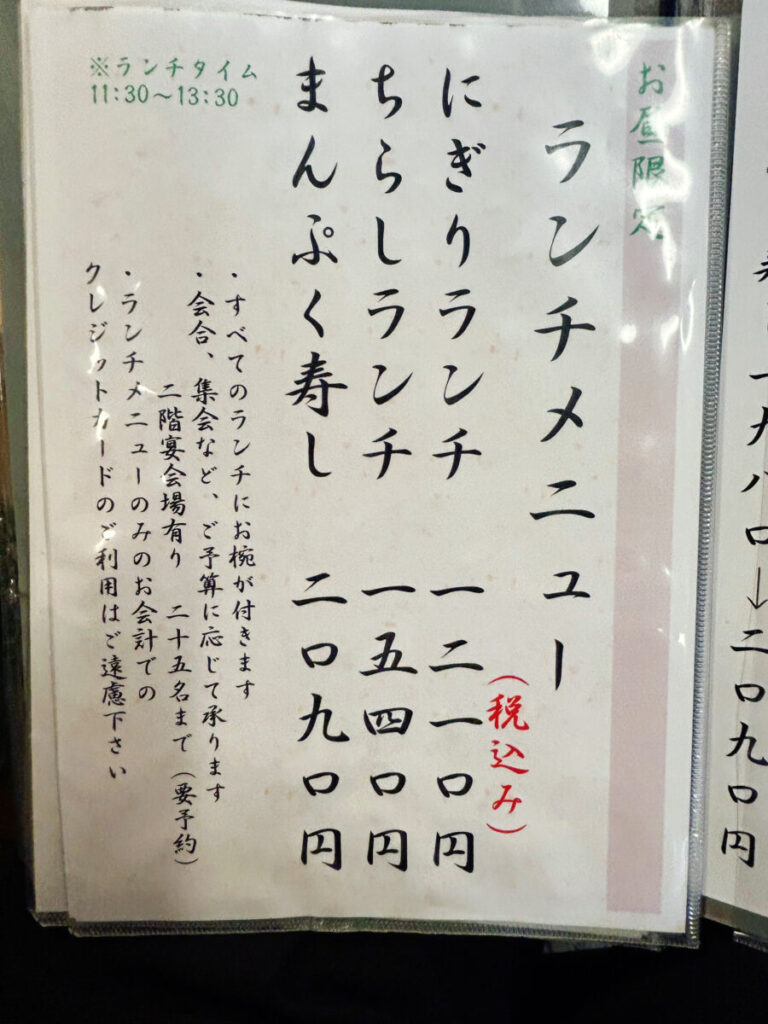 お昼限定
ランチメニュー
(税込み)
にぎりランチ 一二一〇円
ちらしランチ 一五四〇円
まんぷく寿し 二〇九〇円
・すべてのランチにお椀が付きます
・会合、集会など、ご予算に応じて承ります
二階宴会場有り 二十五名まで(要予約)
・ランチメニューのみのお会計での
クレジットカードのご利用はご遠慮下さい
※ランチタイム
11:30〜13:30
一九八〇→二〇九〇円